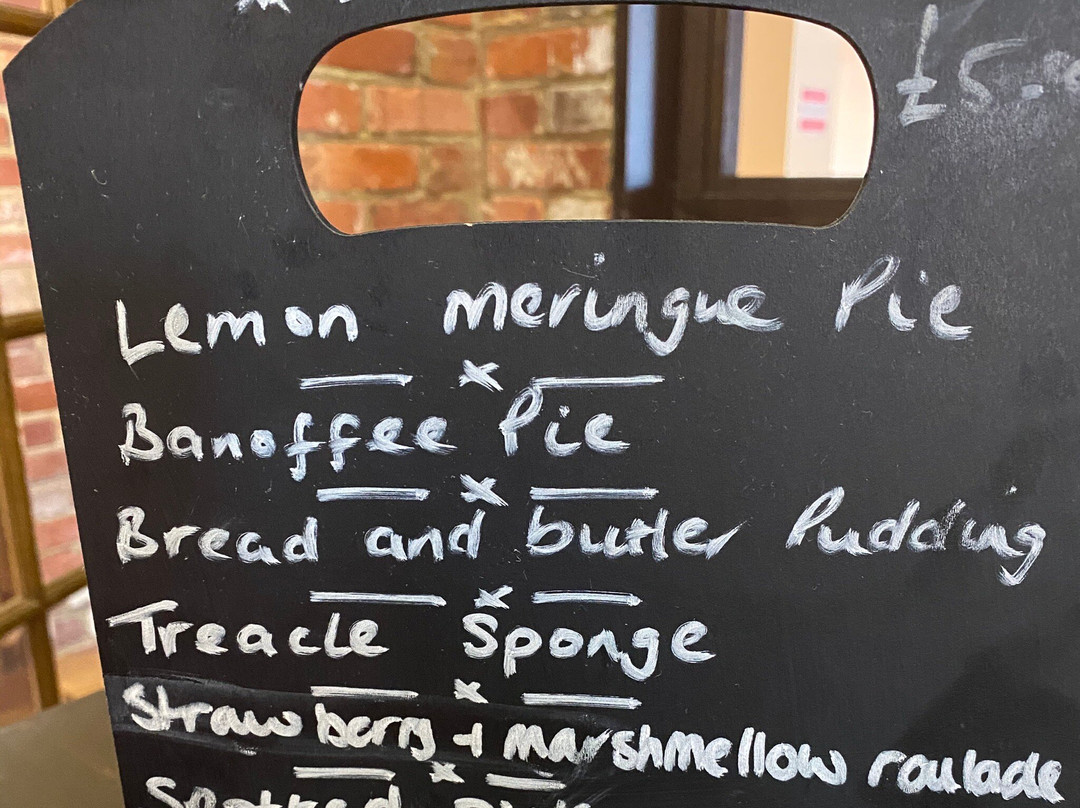 £5.
Lemon meringue Pie
Banoffee Pie
Bread and butter Pudding
Treacle Sponge
Strawberry + marshmellow roulade
Spotted